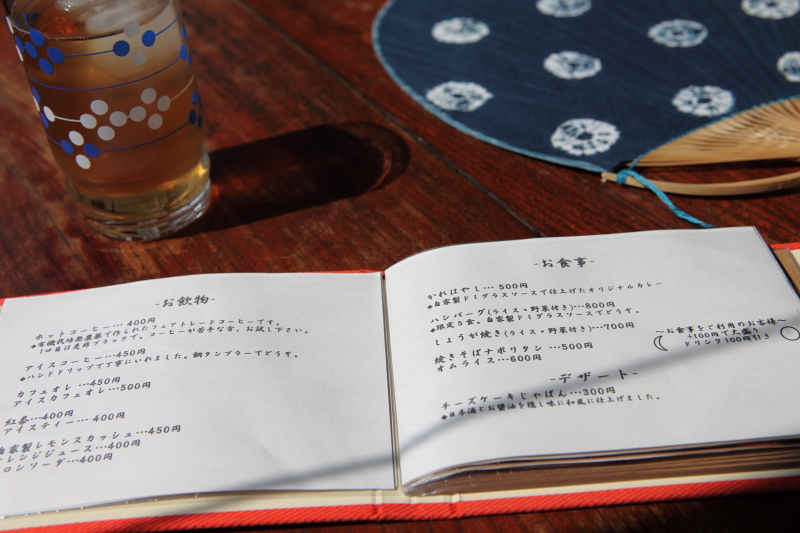 -お飲物-
ホットコーヒー…400円
◆有機栽培無農薬で作られたフェアトレードコーヒーです。
1口目は是非ブラックで。コーヒーが苦手な方、お試し下さい。
アイスコーヒー…450円
◆ハンドドリップで丁寧にいれました。銅タンブラーでどうぞ。
カフェオレ …450円
アイスカフェオレ…500円
紅茶…400円
アイスティー… 400円
自家製レモンスカッシュ…450円
レンジジュース…400円
ロンソーダ…400円
-お食事-
かれはやし… 500円
◆自家製ドミグラスソースで仕上げたオリジナルカレー
ハンバーグ(ライス・野菜付き)…800円
◆限定5食。自家製ドミグラスソースでどうぞ。
しょうが焼き(ライス・野菜付き)…700円
焼きそばナポリタン …500円
オムライス…600円
〜お食事をご利用のお客様〜
+100円で大盛り
ドリンク100円引き
-デザート-
チーズケーキじゃぱん…300円
◆日本酒とお醤油を隠し味に和風に仕上げました。